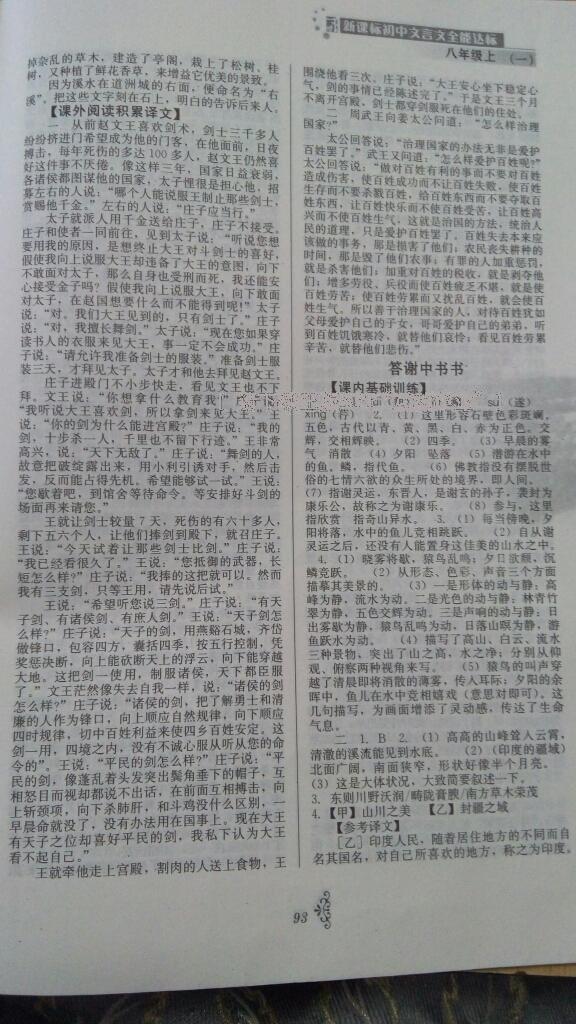 新课标初中文言文全能达标
八年级上 （一）
掉杂乱的草木，建造了亭阁，栽上了松树、桂
树，又种植了鲜花香草，来增益它优美的景致。
因为溪水在道洲城的右面，便命名为“右
溪”。把这些文字刻在石上，明白的告诉后来人。
【课外阅读积累译文】
一 从前赵文王喜欢剑术，剑士三千多人
纷纷挤进门希望成为他的门客，在他面前，日夜
搏击，每年死伤的多达100多人，赵文王仍然喜
好这件事不厌倦。像这样三年，国家日益衰弱，
各诸侯都图谋他的国家，太子悝很是担心他，招
募左右的人说：“哪个人能说服王制止那些剑士，
赏赐他千金。”左右的人说：“庄子应当行。”
太子就派人用千金送给庄子，庄子不接受。
庄子和使者一同前往，见到太子说：“听说您想
要用我的原因，是想终止大王对斗剑士的喜好，
假使我向上说服大王却违备了大王的意图，向下
不敢面对太子，那么自身也受刑而死，我还能安
心接受金子吗？假使我向上说服大王，向下敢面
对太子，在赵国想要什么而不能得到呢！”太子
说：“对。我们大王见到的，只有剑士了。”庄子
说：“对，我擅长舞剑。”太子说：“现在您如果穿
读书人的衣服来见大王，事一定不会成功。”庄
子说：“请允许我准备剑士的服装。”准备剑士服
装三天，才拜见太子。太子才和他去拜见赵文王。
庄子进殿门不小步快走，看见文王也不下
拜。文王说：“你想拿什么教育我？”庄子说：
“我听说大王喜欢剑，所以拿剑来见大王。”王
说：“你的剑为什么能进宫殿？”庄子说：“我的
剑，十步杀一人，千里也不留下行迹。”王非常
高兴，说：“天下无敌了。”庄子说：“舞剑的人，
故意把破绽露出来，用小利引诱对手，然后击
发，反而能占得先机。希望能够试一试。”王说：
“您歇着吧，到馆舍等待命令。等安排好斗剑的
场面再来请您。”
王就让剑士较量7天，死伤的有六十多人，
剩下五六个人，让他们捧剑到殿下，就召庄子。
王说：“今天试着让那些剑士比剑。”庄子说：
“我已经看很久了。”王说：“您抵御的武器，长
短怎么样？”庄子说：“我捧的这把就可以。然而
我有三支剑，只等王用，请先说后试。”
王说：“希望听您说三剑。”庄子说：“有天
子剑、有诸侯剑、有庶人剑。”王说：“天子剑怎
么样？”庄子说：“天子的剑，用燕谿石城，齐岱
做锋口，包容四方，囊括四季，按五行控制，凭
奖惩决断，向上能砍断天上的浮云，向下能穿越
大地。这把剑一使用，制服诸侯，天下都臣服
了。”文王茫然像失去自我一样，说：“诸侯的剑
怎么样？”庄子说：“诸侯的剑，把了解勇士和清
廉的人作为锋口，向上顺应自然规律，向下顺应
四时规律，切中百姓利益来使四乡百姓安定。这
剑一用，四境之内，没有不诚心服从听从您的命
令的”。王说：“平民的剑怎么样？”庄子说：“平
民的剑，像蓬乱着头发突出鬓角垂下的帽子，互
相怒目而视却都说不出话，在前面互相搏击，向
上斩颈项，向下杀肺肝，和斗鸡没什么区别，一
早晨命就没了，没有办法用在国事上。现在大王
有天子之位却喜好平民的剑，我私下认为大王
看不起自己。”
王就牵他走上宫殿，割肉的人送上食物，王
围绕他看三次。庄子说：“大王安心坐下稳定心
气，剑的事情已经陈述完了。”于是文王三个月
不离开宫殿，剑士都穿剑服死在他们的住处。
二 周武王向姜太公问道：“怎么样治理
国家？”
太公回答说：“治理国家的办法无非是爱护
百姓罢了。”武王又问道：“怎么样爱护百姓呢？”
太公回答说：“做对百姓有利的事而不要对百姓
造成伤害，使百姓成功而不让百姓失败，使百姓
生存而不要杀戮百姓，给百姓东西而不要夺取百
姓东西，让百姓快乐而不使百姓受苦，让百姓高
兴而不使百姓生气，这就是治国的方法，统治人
民的道理，只是爱护百姓罢了。百姓失去本来应
该做的事务，那是损害了他们；农民丧失耕种的
时间，那是毁了他们农事；有罪的人加重惩罚，
就是杀害他们；加重对百姓的税收，就是剥夺他
们；增多劳役、兵役而使百姓疲乏不堪，就是使
百姓劳苦；使百姓劳累而又扰乱百姓，就会使百
姓生气。所以善于治理国家的人，对待百姓犹如
父母爱护自己的子女，哥哥爱护自己的弟弟，听
到百姓饥饿寒冷，就替他们哀怜；看见百姓劳累
辛苦，就替他们悲伤。”
答谢中书书
【课内基础训练】
suì（遂）
xìng（荇） 2.（1）这里形容石壁色彩斑斓。
五色，古代以青、黄、黑、白、赤为正色。交
辉，交相辉映。（2）四季。（3）早晨的雾
气 消散 （4）夕阳 坠落 （5）潜游在水中
的鱼。鳞，指代鱼。（6）佛教指没有摆脱世
俗的七情六欲的众生所处的境界，即人间。
（7）指谢灵运，东晋人，是谢玄的孙子，袭封为
康乐公，故称之为谢康乐。（8）参与，这里
指欣赏 指奇山异水。 3.（1）每当傍晚，夕
阳将落，水中的鱼儿竞相跳跃。（2）自从谢
灵运之后，还没有人能置身这佳美的山水之中。
4.（1）晓雾将歇，猿鸟乱鸣；夕日欲颓，沉
鳞竞跃。（2）从形态、色彩、声音三个方面
描摹其美景的。（3）一是形体的动与静：高
峰为静，流水为动。二是光色的动与静：林青竹
翠为静，五色交辉为动。三是声响的动与静：日
出雾歇为静，猿鸟乱鸣为动，日落山暝为静，游
鱼跃水为动。（4）描写了高山、白云、流水
三种景物，突出了山之高，水之净；分别从仰
观、俯察两种视角来写。（5）猿鸟的叫声穿
越了清晨即将消散的薄雾，传入耳际；夕阳的余
晖中，鱼儿在水中竞相嬉戏（意思对即可）。这
几句描写，为画面增添了灵动感，传达了生命
气息。
二 1. B 2.（1）高高的山峰耸入云霄，
清澈的溪流能见到水底。（2）（印度的疆域）
北面广阔，南面狭窄，形状好像半个月亮。
（3）这是大体状况，大致简要叙述一下。
3. 东则川野沃润/畴陇膏腴/南方草木荣茂
4.【甲】山川之美 【乙】封疆之域
【参考译文】
［乙］印度人民，随着居住地方的不同而自
名其国名，对自己所喜欢的地方，称之为印度。
93